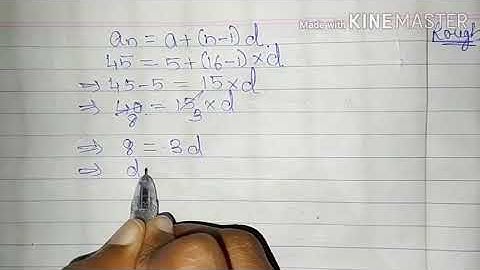 Made with KINEMASTER
Rough
an = a + (n-1) d.
45 = 5 + (16-1) × d
⇒ 45 - 5 = 15 × d
⇒ 40 = 15 × d
8 3
⇒ 8 = 3d
⇒ d